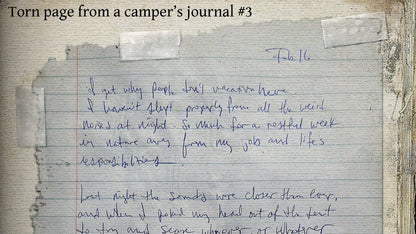 Torn page from a camper's journal #3
Feb 16
I get why people don't vacation here.
I haven't slept properly from all the weird
noises at night. So much for a restful week
in nature away from my job and life's
responsibilities.
Last night the sounds were closer than ever,
and when I poked my head out of the tent
to try and scare whoever or whatever